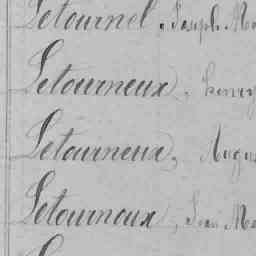 Letournel, Joseph
Letourneux, Henry
Letourneux,
Letournoux, Jean